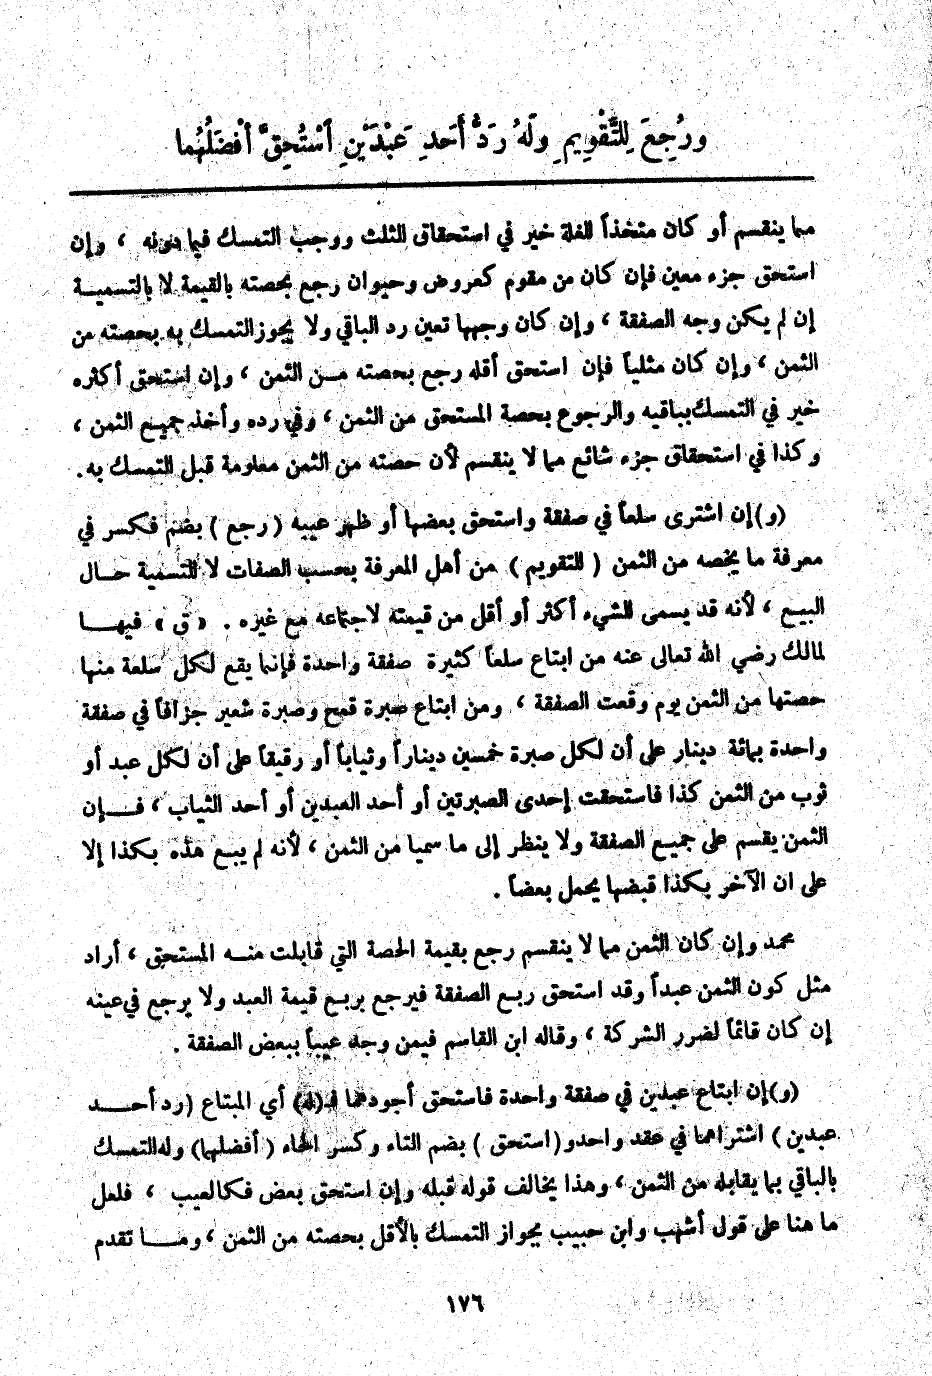 ورُجِعَ لِلتَّقْوِيمِ وَلَهُ رَدُّ أَحَدِ عَبْدَيْنِ اسْتُحِقَّ أَفْضَلُهُمَا
مما ينقسم أو كان متخذاً للغلة خير في استحقاق الثلث ووجب التمسك فيما دونه ، وإن
استحق جزء معين فإن كان من مقوم كعروض وحيوان رجع بحصته بالقيمة لا بالتسمية
إن لم يكن وجه الصفقة ، وإن كان وجهها تعين رد الباقي ولا يجوز التمسك به بحصته من
الثمن ، وإن كان مثلياً فإن استحق أقله رجع بحصته من الثمن ، وإن استحق أكثره
خير في التمسك بباقيه والرجوع بحصة المستحق من الثمن ، وفي رده وأخذ جميع الثمن ،
وكذا في استحقاق جزء شائع مما لا ينقسم لأن حصته من الثمن معلومة قبل التمسك به .
(و) إن اشترى سلعاً في صفقة واستحق بعضها أو ظهر عيبه ( رجع ) بضم فكسر في
معرفة ما يخصه من الثمن ( للتقويم ) من أهل المعرفة بحسب الصفات لا للتسمية حال
البيع ، لأنه قد يسمى للشيء أكثر أو أقل من قيمته لاجتماعه مع غيره . « ق » فيها
لمالك رضي الله تعالى عنه من ابتاع سلعاً كثيرة صفقة واحدة فإنما يقع لكل سلعة منها
حصتها من الثمن يوم وقعت الصفقة ، ومن ابتاع صبرة قمح وصبرة شعير جزافاً في صفقة
واحدة بمائة دينار على أن لكل صبرة خمسين ديناراً وثياباً أو رقيقاً على أن لكل عبد أو
ثوب من الثمن كذا فاستحقت إحدى الصبرتين أو أحد العبدين أو أحد الثياب ، فإن
الثمن يقسم على جميع الصفقة ولا ينظر إلى ما سميا من الثمن ، لأنه لم يبع هذه بكذا إلا
على ان الآخر بكذا قبضها يحمل بعضاً .
محمد وإن كان الثمن مما لا ينقسم رجع بقيمة الحصة التي قابلت منه المستحق ، أراد
مثل كون الثمن عبداً وقد استحق ربع الصفقة فيرجع بربع قيمة العبد ولا يرجع في عينه
إن كان قائماً لضرر الشركة ، وقاله ابن القاسم فيمن وجد عيباً ببعض الصفقة .
(و) إن ابتاع عبدين في صفقة واحدة فاستحق أجودهما فـ (له) أي المبتاع (رد أحد
عبدين ) اشتراهما في عقد واحد و ( استحق ) بضم التاء وكسر الحاء ( أفضلهما) وله التمسك
بالباقي بما يقابله من الثمن ، وهذا يخالف قوله قبله وإن استحق بعض فكالعيب ، فلعل
ما هنا على قول أشهب وابن حبيب يجواز التمسك بالأقل بحصته من الثمن ، وما تقدم
١٧٦